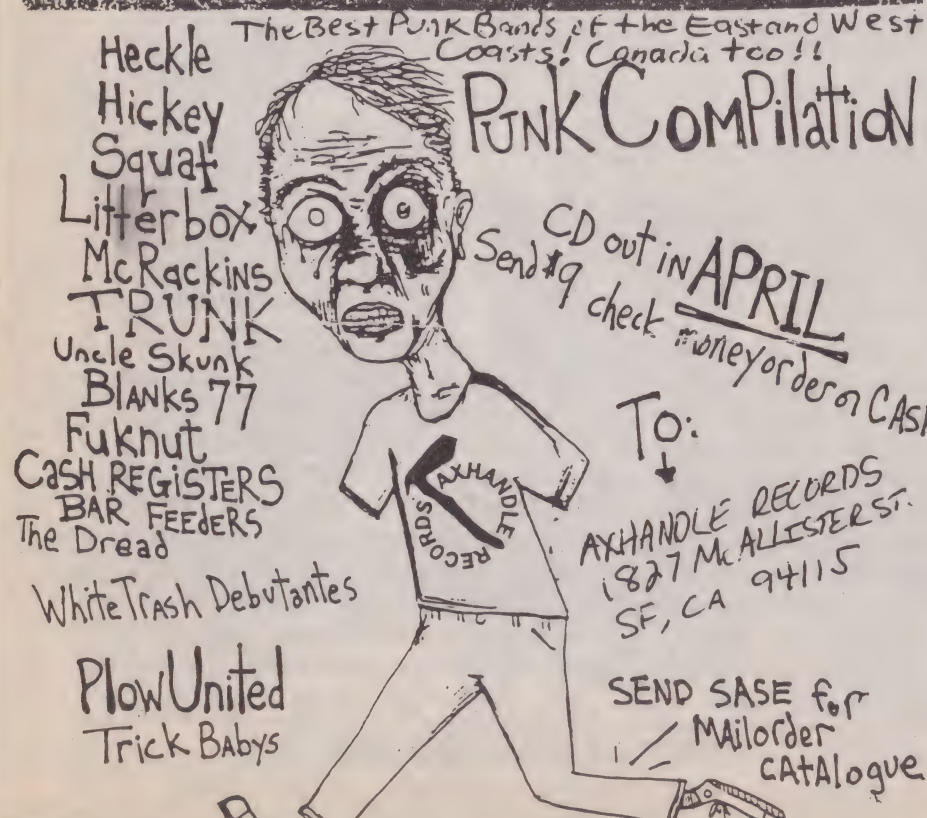 The Best Punk Bands of the East and West
Coasts! Canada too!!
PUNK COMPilatioN
Heckle
Hickey
Squat
Litterbox
McRackins
TRUNK
Uncle Skunk
BLANKS 77
Fuknut
CASH REGiSTERS
BAR FEEdERS
The Dread
White Trash Debutantes
Plow United
Trick Babys
CD out in APRIL
Send $9 check money order or CASH
To:
AXHANDLE RECORDS
1827 McALLISTER ST.
SF, CA 94115
AXHANDLE RECORDS
SEND SASE for
MAilorder
CAtAlogue